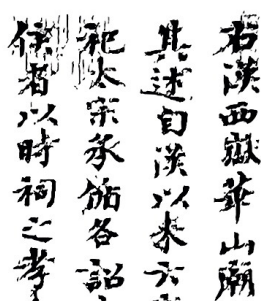 右漢西嶽華山廟
其述自漢以來云
祀太宗承循各詔
侯者以時祠之孝